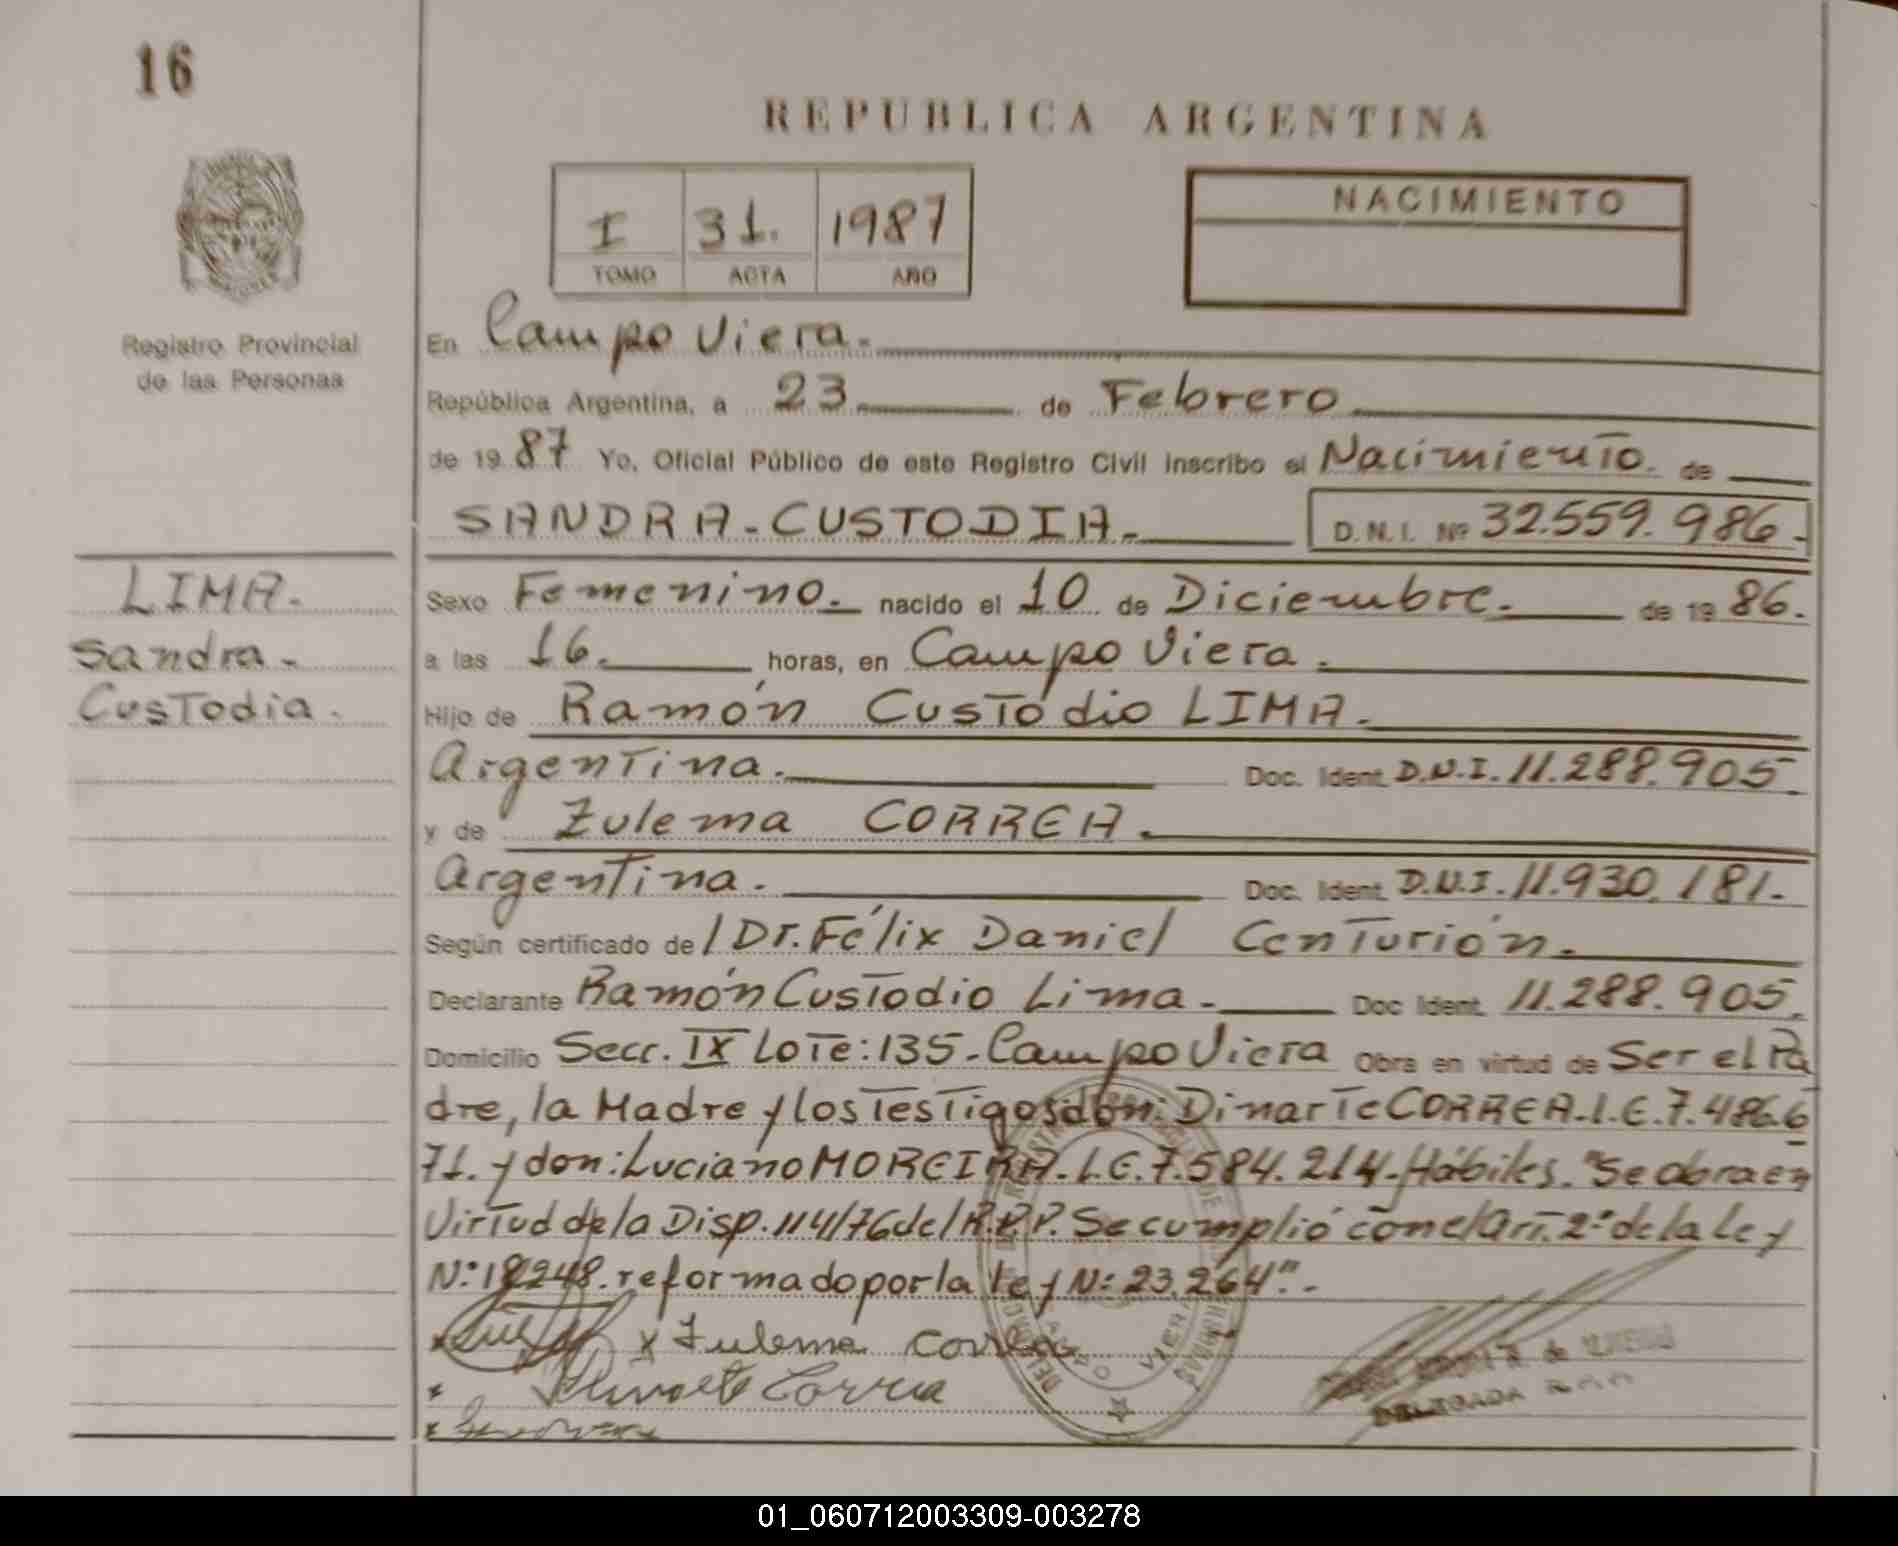 16
REPUBLICA ARGENTINA
I 31. 1987
TOMO ACTA AÑO
NACIMIENTO
Registro Provincial
de las Personas
En Campo Viera.
República Argentina, a 23 de Febrero
de 19 87 Yo, Oficial Público de este Registro Civil inscribo el Nacimiento. de
SANDRA-CUSTODIA.
D.N.I. Nº 32.559.986.
LIMA.
Sandra.
Custodia.
Sexo Femenino. nacido el 10 de Diciembre. de 19 86.
a las 16. horas, en Campo Viera.
Hijo de Ramón Custodio LIMA.
Argentina. Doc. Ident. D.N.I. 11.288.905.
y de Zulema CORREA.
Argentina. Doc. Ident. D.N.I. 11.930.181.
Según certificado de / Dr. Félix Daniel Centurión.
Declarante Ramón Custodio Lima. Doc Ident. 11.288.905.
Domicilio Secc. IX Lote: 135. Campo Viera Obra en virtud de Ser el Pa
dre, la Madre y los Testigos don: Dinarte CORREA. L.E. 7.486.6
71. y don: Luciano MOREIRA. L.E. 7.584.214. Hábiles. "Se obra en
Virtud de la Disp. 114/76 del R.P.P. Se cumplió con el Art. 2º de la Ley
Nº 18248. reformado por la Ley Nº 23.264".
x x Zulema Correa
x Correa
x
DELEGADA
CAMPO VIERA
01_060712003309-003278